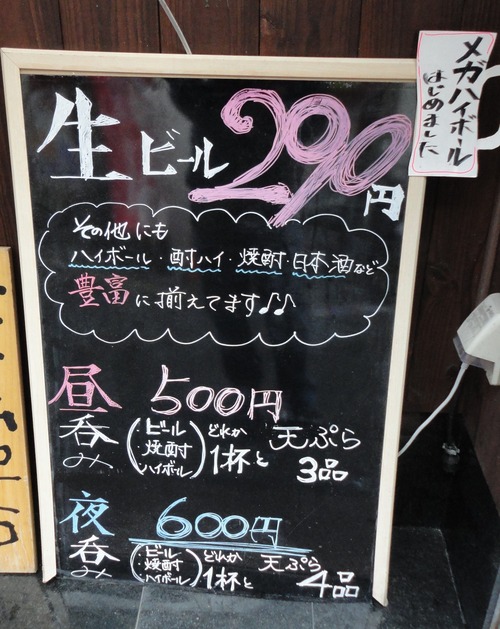 メガハイボール
はじめました
生ビール 290円
その他にも
ハイボール・酎ハイ・焼酎・日本酒など
豊富に揃えてます♪♪
昼呑み 500円
(ビール
焼酎
ハイボール)
どれか
1杯と
天ぷら
3品
夜呑み 600円
(ビール
焼酎
ハイボール)
どれか
1杯と
天ぷら
4品